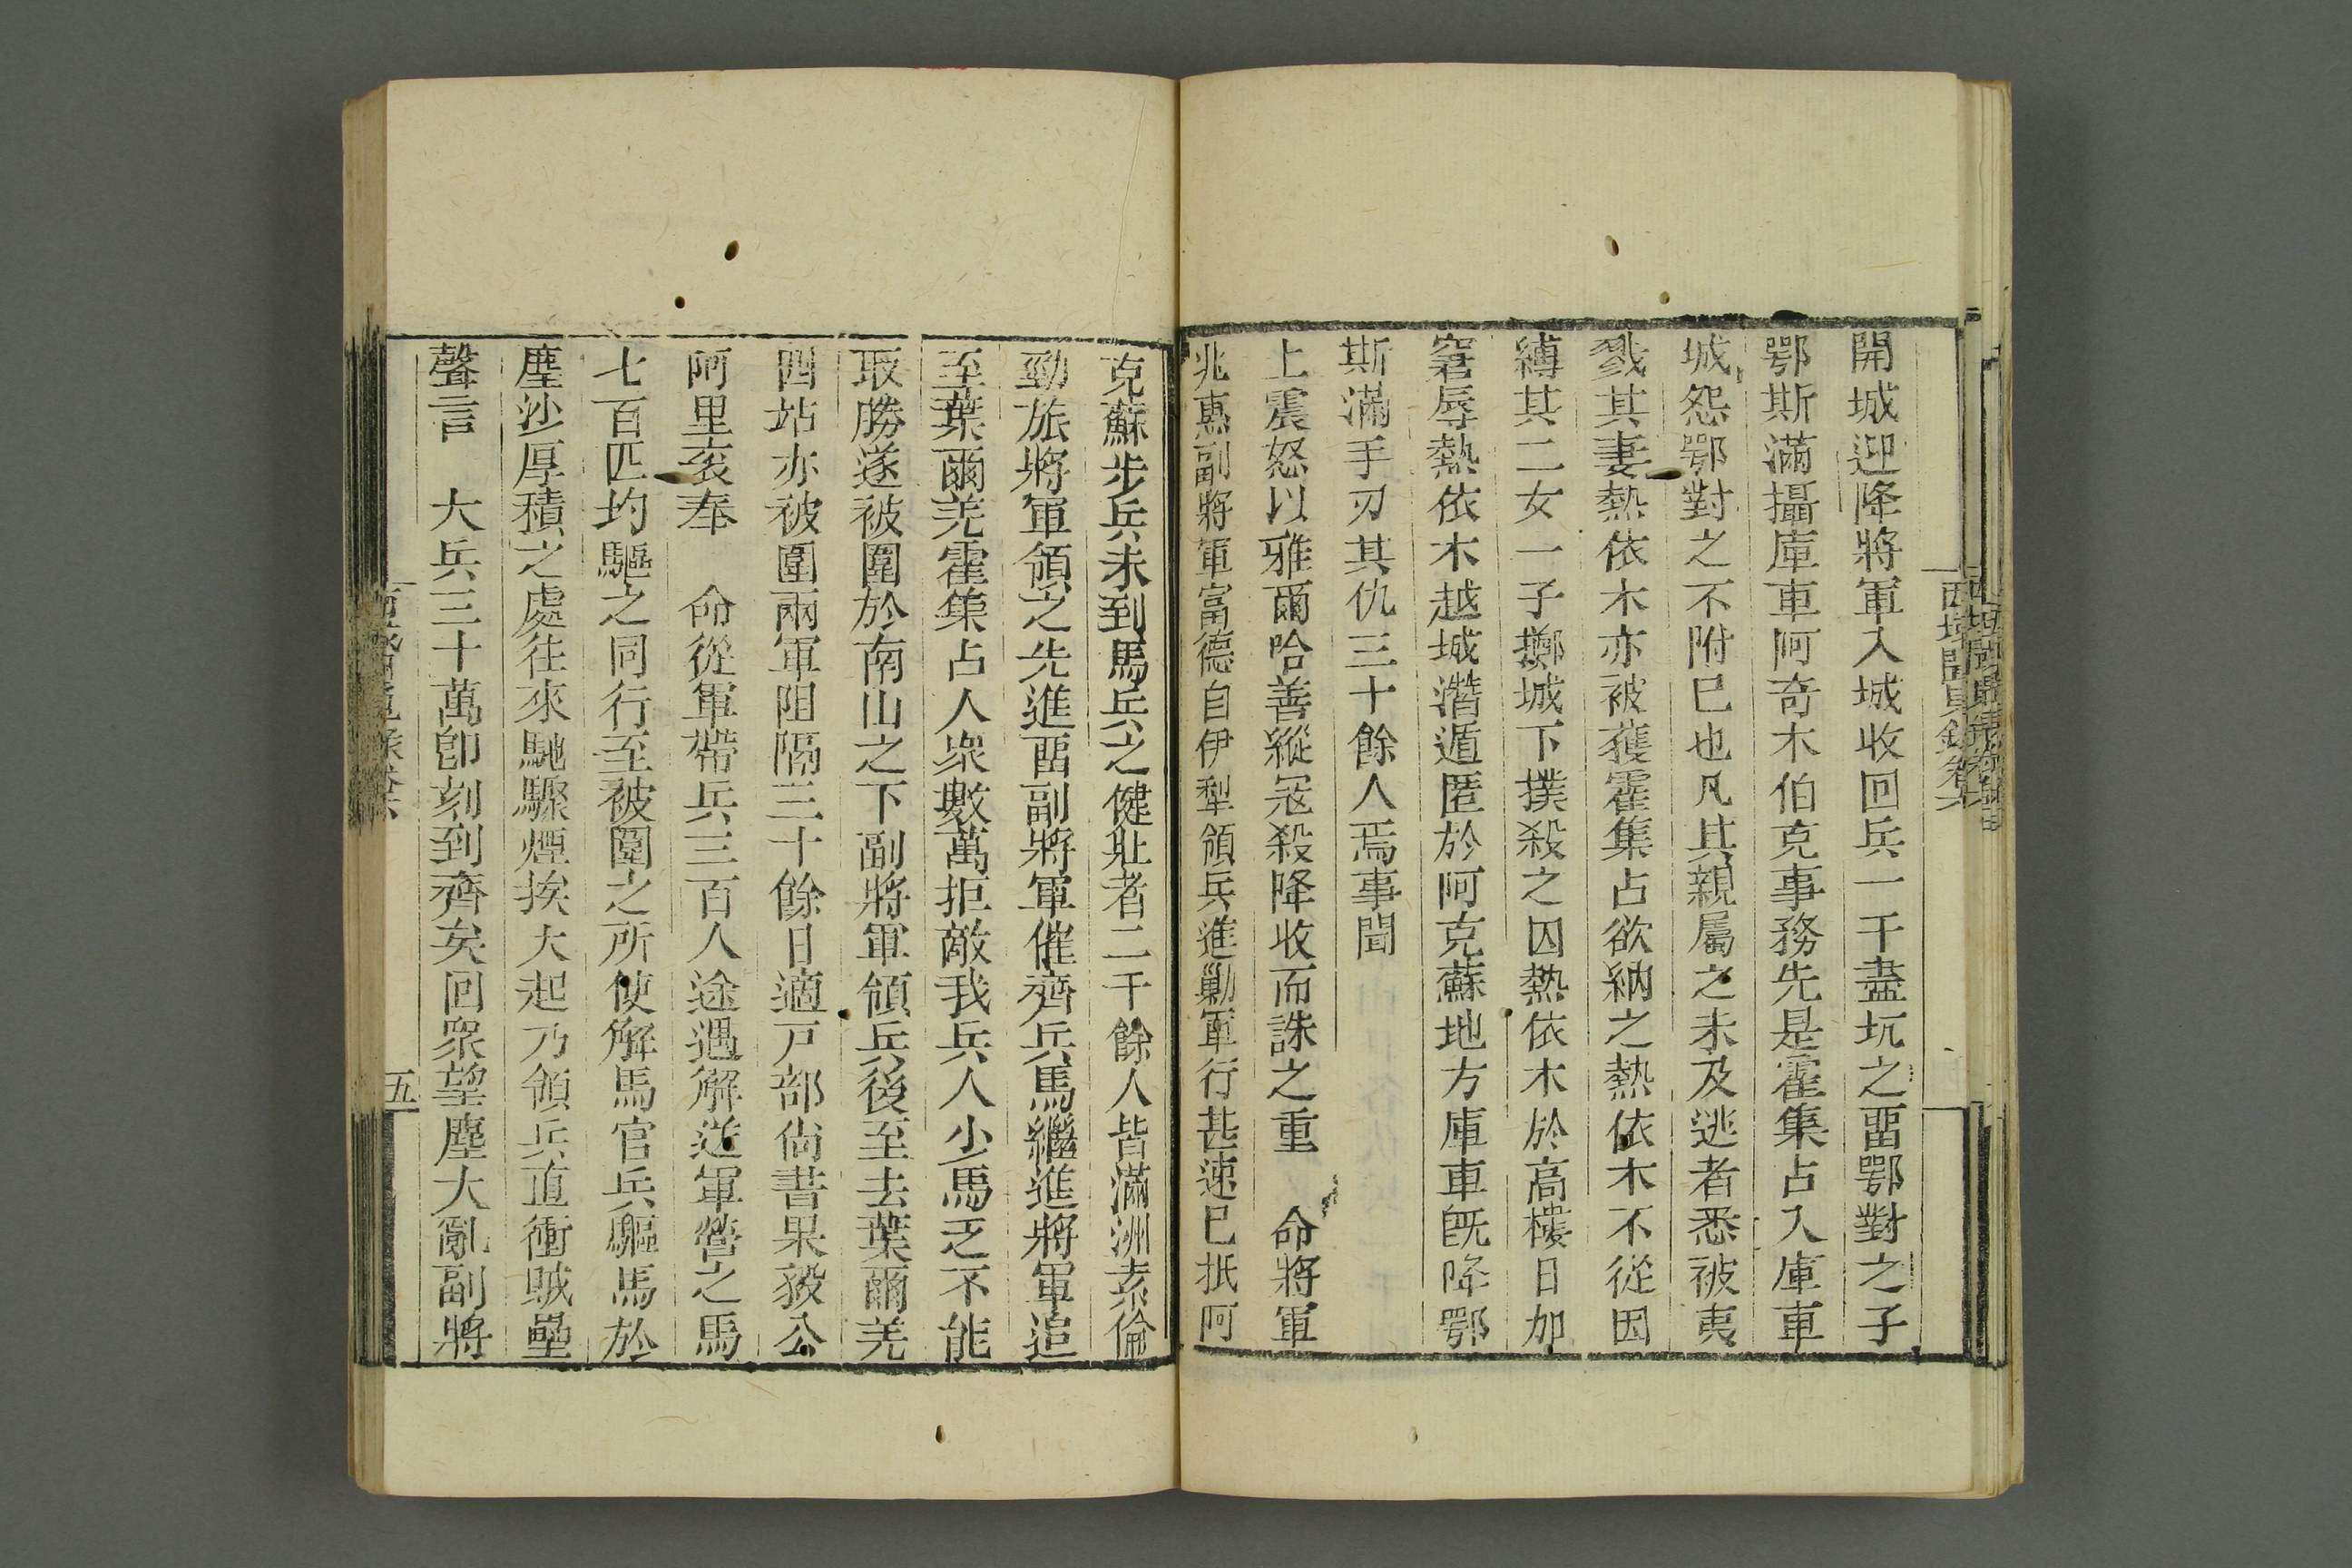 開城迎降將軍入城收回兵一千盡坑之畱鄂對之子
鄂斯滿攝庫車阿奇木伯克事務先是霍集占入庫車
城怨鄂對之不附已也凡其親屬之未及逃者悉被夷
戮其妻熱依木亦被獲霍集占欲納之熱依木不從因
縛其二女一子擲城下撲殺之囚熱依木於高樓日加
窘辱熱依木越城潛遁匿於阿克蘇地方庫車既降鄂
斯滿手刃其仇三十餘人焉事聞
上震怒以雅爾哈善縱冦殺降收而誅之重　命將軍
兆惠副將軍富德自伊犁領兵進勦軍行甚速已抵阿
克蘇步兵未到馬兵之健壯者二千餘人皆滿洲索倫
勁旅將軍領之先進畱副將軍催齊兵馬繼進將軍追
至葉爾羌霍集占人衆數萬拒敵我兵人少馬乏不能
取勝遂被圍於南山之下副將軍領兵後至去葉爾羌
四站亦被圍兩軍阻隔三十餘日適戸部尙書果毅公
阿里衮奉　命從軍帶兵三百人途遇解送軍營之馬
七百匹均驅之同行至被圍之所使解馬官兵驅馬於
塵沙厚積之處往來馳驟煙挨大起乃領兵直衝賊壘
聲言　大兵三十萬卽刻到齊矣回衆望塵大亂副將
五